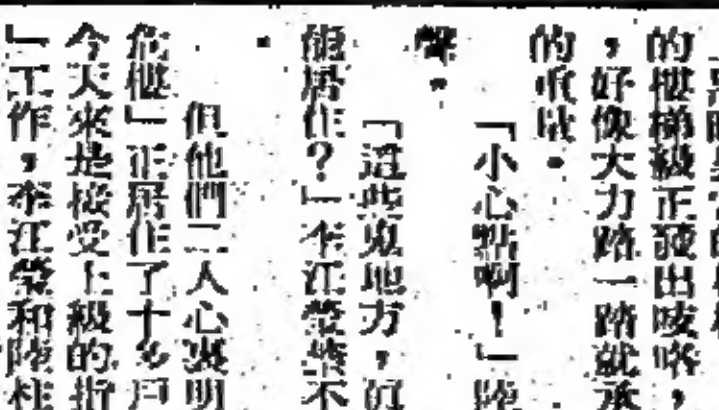 的樓梯級正發出咳咯，
，好像大力踏一踏就承
的重量。
「小心點啊！」陸
聲。
「這些鬼地方，眞
能居住？」李江瑩禁不
。
但他們二人心裏明
危樓」正居住了十多戶
今天來是接受上級的指
」工作，李江瑩和陸柱